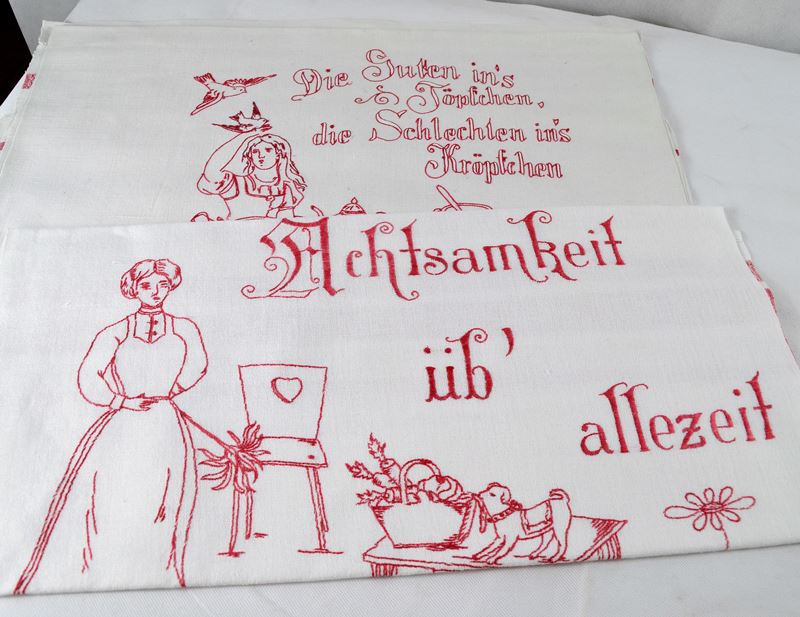 Die Guten in's
Töpfchen,
die Schlechten in's
Kröpfchen
Achtsamkeit
üb'
allezeit